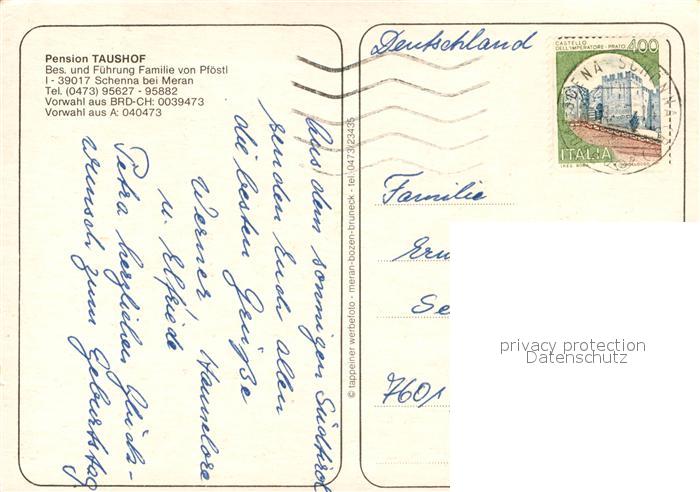 Pension TAUSHOF
Bes. und Führung Familie von Pföstl
I - 39017 Schenna bei Meran
Tel. (0473) 95627 - 95882
Vorwahl aus BRD-CH: 0039473
Vorwahl aus A: 040473
Aus dem sonnigen Südtirol
senden Euch allen
die besten Grüße
Werner Hannelore
u. Elfriede
Petra herzlichen Glück-
wunsch zum Geburtstag
© tappeiner werbefoto - meran-bozen-bruneck - tel. 0473/23435
Deutschland
CASTELLO
DELL'IMPERATORE - PRATO
400
ITALIA
SCHENNA
Familie
7601
privacy protection
Datenschutz